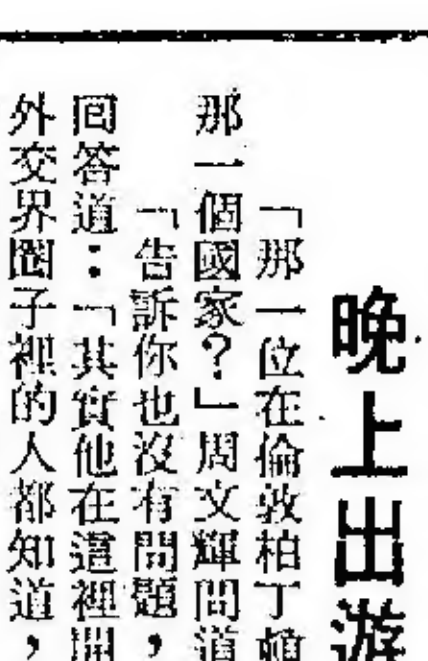 晚上出游
「那一位在倫敦柏丁頓
那一個國家？」周文輝問道
「告訴你也沒有問題，
回答道：「其實他在這裡開
外交界圈子裡的人都知道，